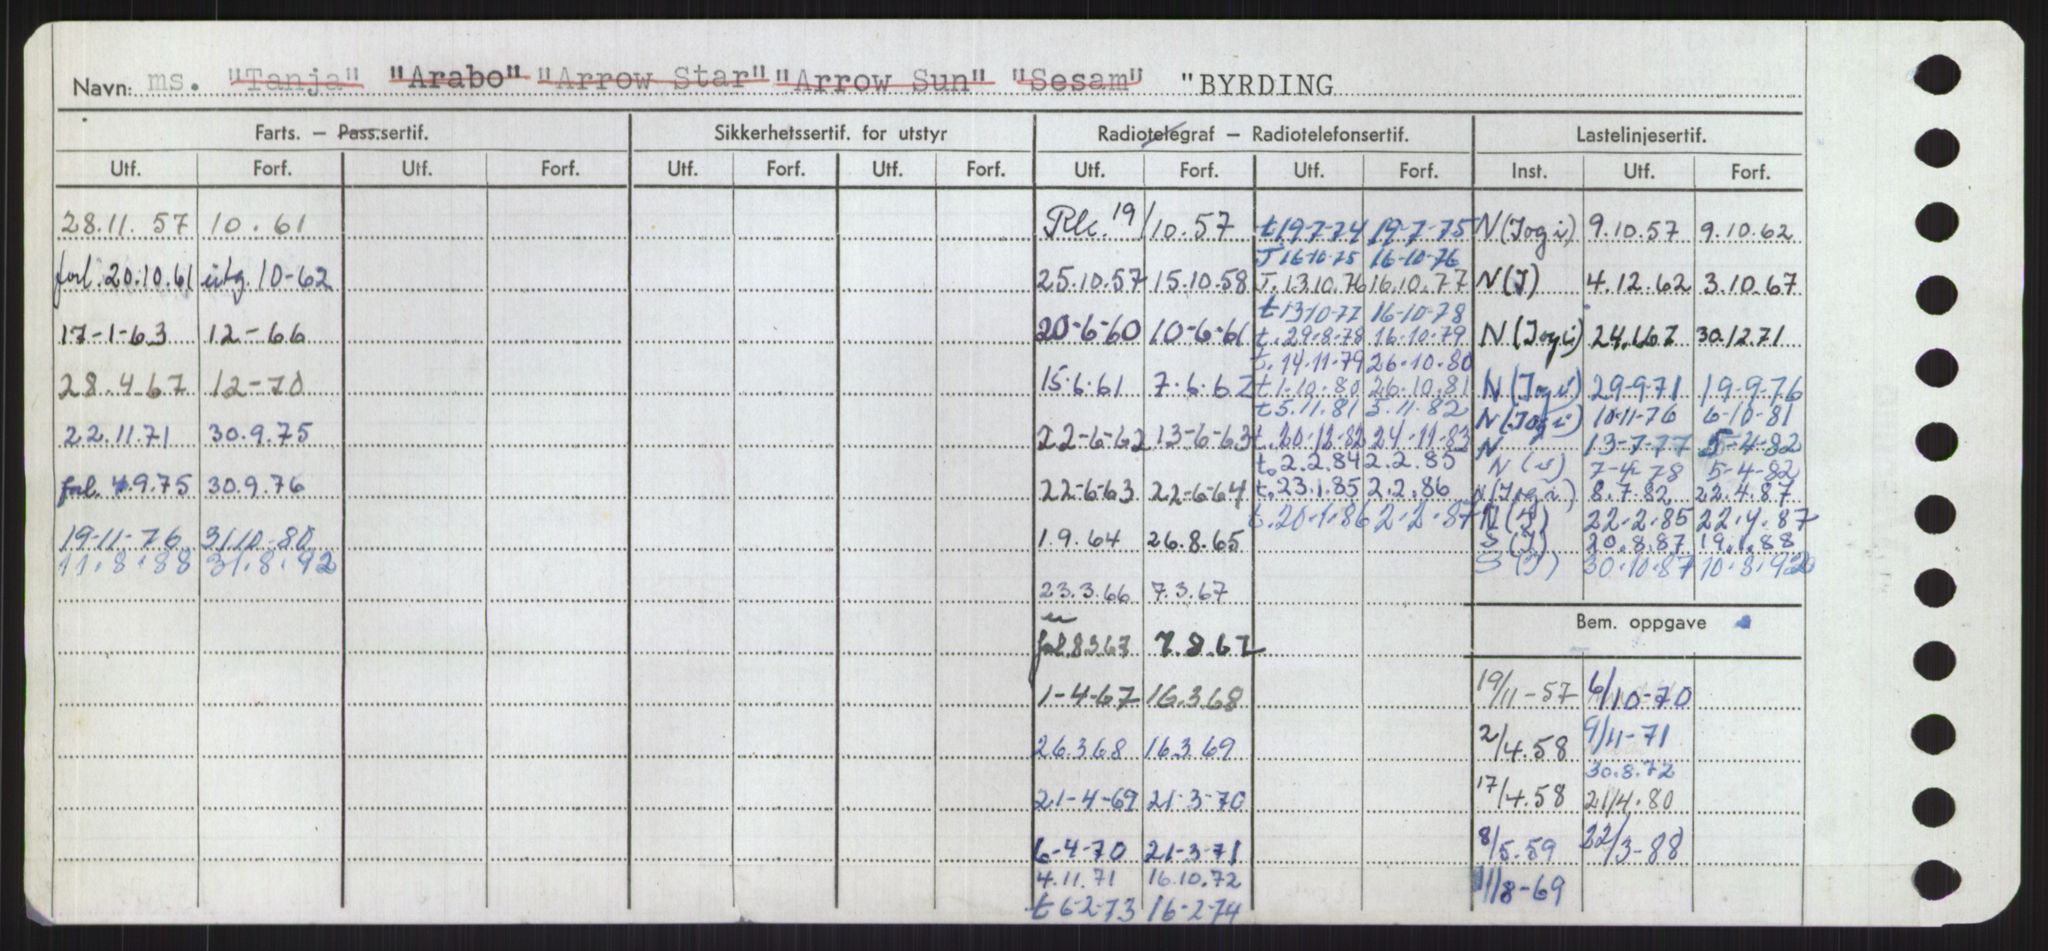 Navn: ms. "Tanja" "Arabo" "Arrow Star" "Arrow Sun" "Sesam" "BYRDING
Farts. – Pass.sertif. Sikkerhetssertif. for utstyr Radiotelegraf – Radiotelefonsertif. Lastelinjesertif.
Utf. Forf. Utf. Forf. Utf. Forf. Utf. Forf. Utf. Forf. Utf. Forf. Inst. Utf. Forf.
28.11.57 10.61
forl. 20.10.61 utg. 10-62
17-1-63 12-66
28.4.67 12-70
22.11.71 30.9.75
forl. 4.9.75 30.9.76
19-11-76 31.10-80
11.8.88 31.8.92
19/10.57
25.10.57 15.10.58
20-6-60 10-6-61
15.6.61 7.6.62
22-6-62 13-6-63
22-6-63 22-6-64
1.9.64 26.8.65
23.3.66 7.3.67
forl. 8.3.67 7.8.67
1-4-67 16.3.68
26.3.68 16.3.69
21-4-69 21-3-70
6-4-70 21-3-71
4.11.71 16.10.72
t 6-2-73 16-2-74
t 19-7-74 19-7-75
T 16-10-75 16-10-76
T. 13.10.76 16.10.77
t 13-10-77 16-10-78
t. 29-8-78 16-10-79
t. 14-11-79 26-10-80
t 1.10.80 26.10.81
t 5.11.81 5.11.82
t. 20-12-82 24-11-83
t. 2.2.84 2.2.85
t. 23.1.85 2.2.86
t. 20-1-86 2-2-87
N (Jog i) 9.10.57 9.10.62
N (J) 4.12.62 3.10.67
N (Jog i) 24.1.67 30.12.71
N (Jog i) 29-9-71 19-9-76
N (Jog i) 10-11-76 6-10-81
N 13-7-77 5-4-82
N 7-4-78 5-4-82
N (Jog i) 8.7.82 22.4.87
N (J) 22-2-85 22.4.87
S (J) 20.8.87 19.1.88
S (J) 30.10.87 10.8.92
Bem. oppgave
19/11-57 6/10-70
2/4.58 9/11-71
30.8.72
17/4.58 21/4.80
8/5.59 22/3-88
11/8-69